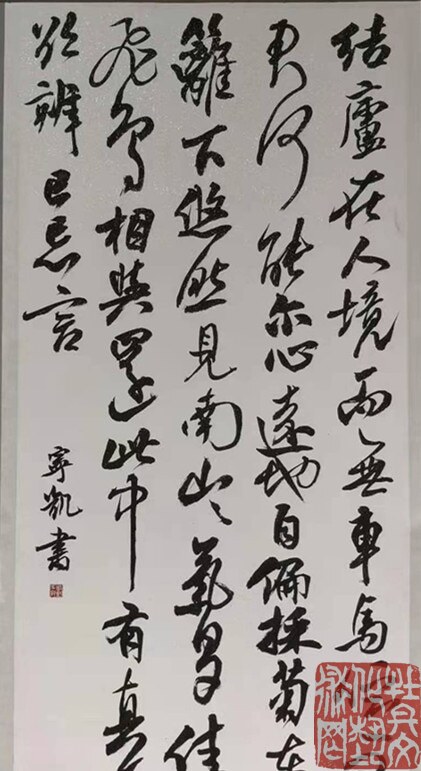 结廬在人境而無車馬喧
君何能尔心遠地自偏採菊东
籬下悠然見南山々氣日夕佳
飛鳥相與還此中有真
欲辨已忘言
凯書